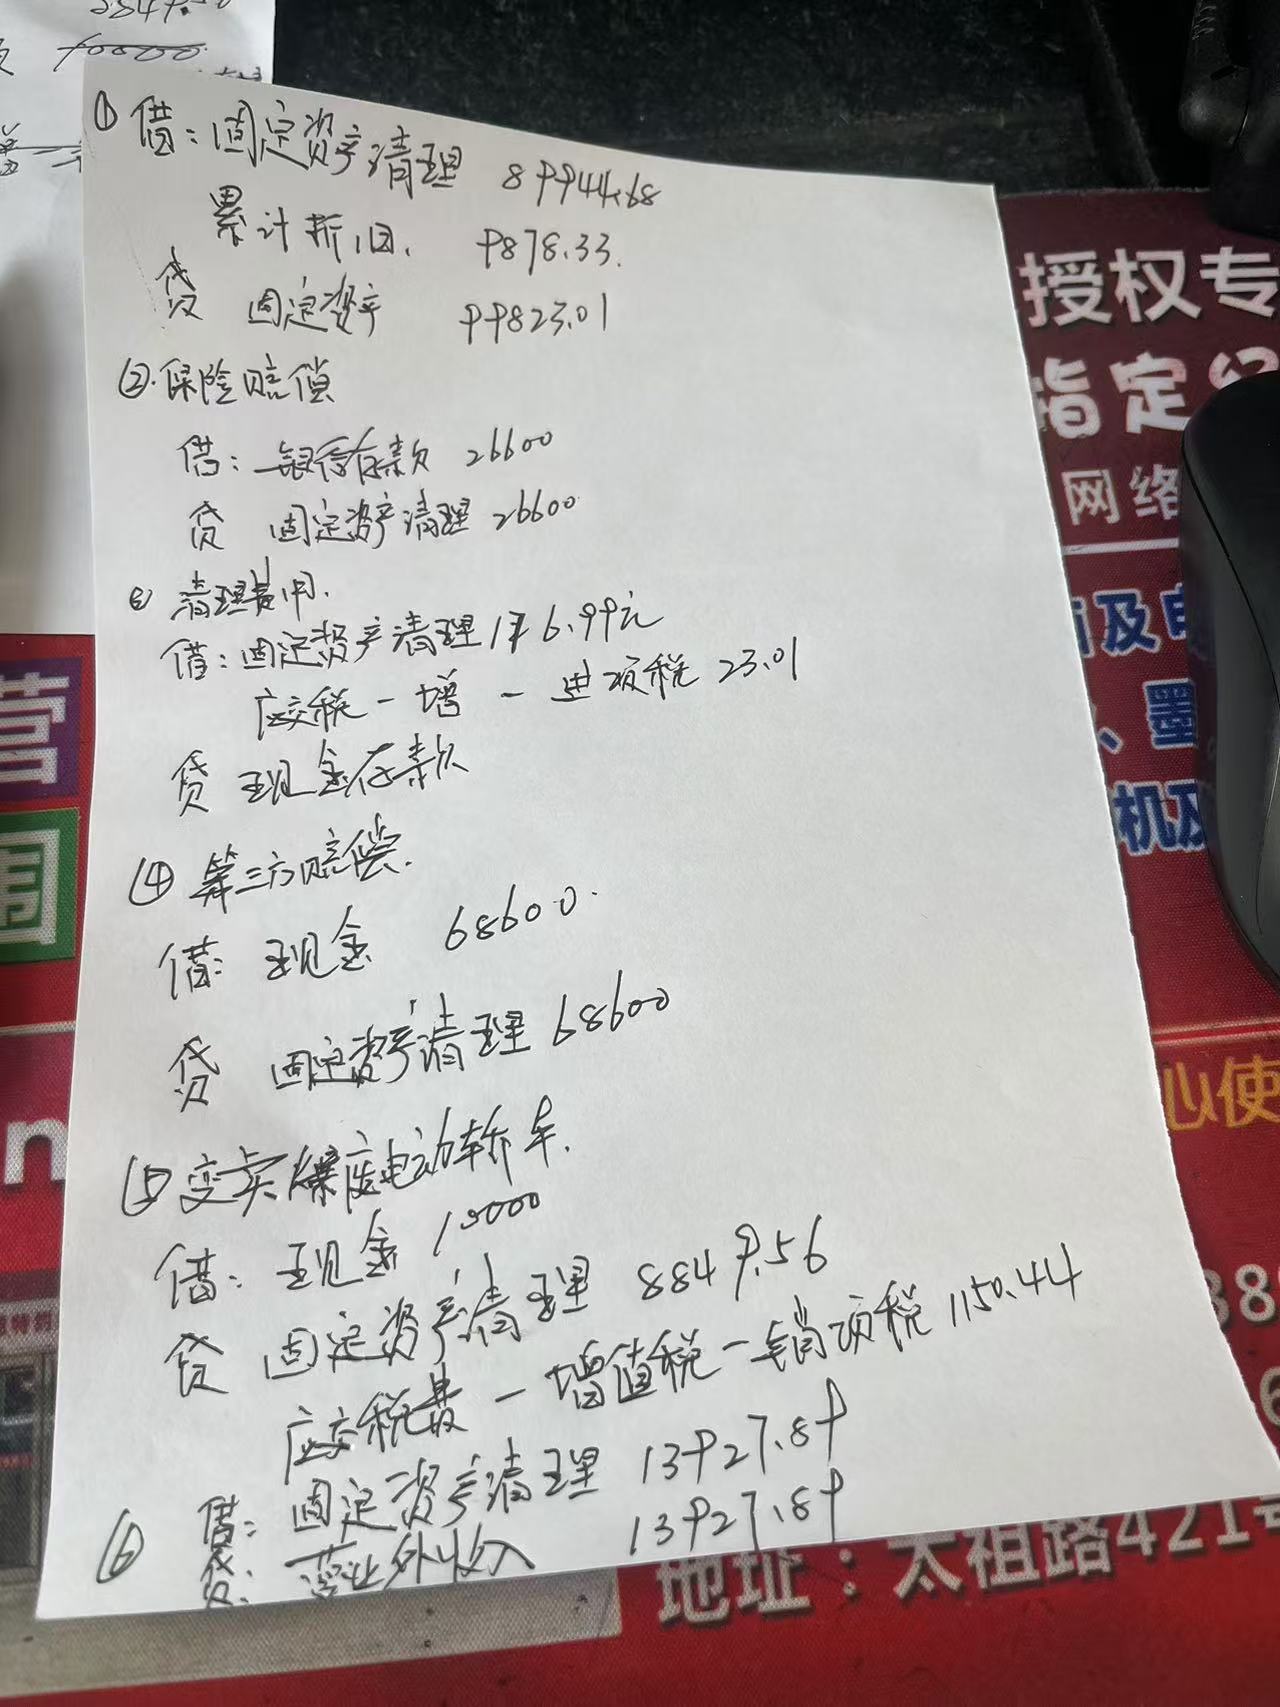 ① 借：固定资产清理 89944.68
累计折旧. 9878.33.
贷 固定资产 99823.01
②.保险赔偿
借：银行存款 26600
贷 固定资产清理 26600
③ 清理费用.
借：固定资产清理 176.99元
应交税－增－进项税 23.01
贷 现金存款
④ 第三方赔偿.
借: 现金 68600.
贷 固定资产清理 68600
⑤ 变卖 废电动轿车.
借：现金 10000
贷 固定资产清理 8849.56
应交税费－增值税－销项税 1150.44
⑥ 借：固定资产清理 13927.89
贷：营业外收入 13927.89
授权专
指定
网络
及电
、墨
机及
心使
地址：太祖路421号
营
围
n